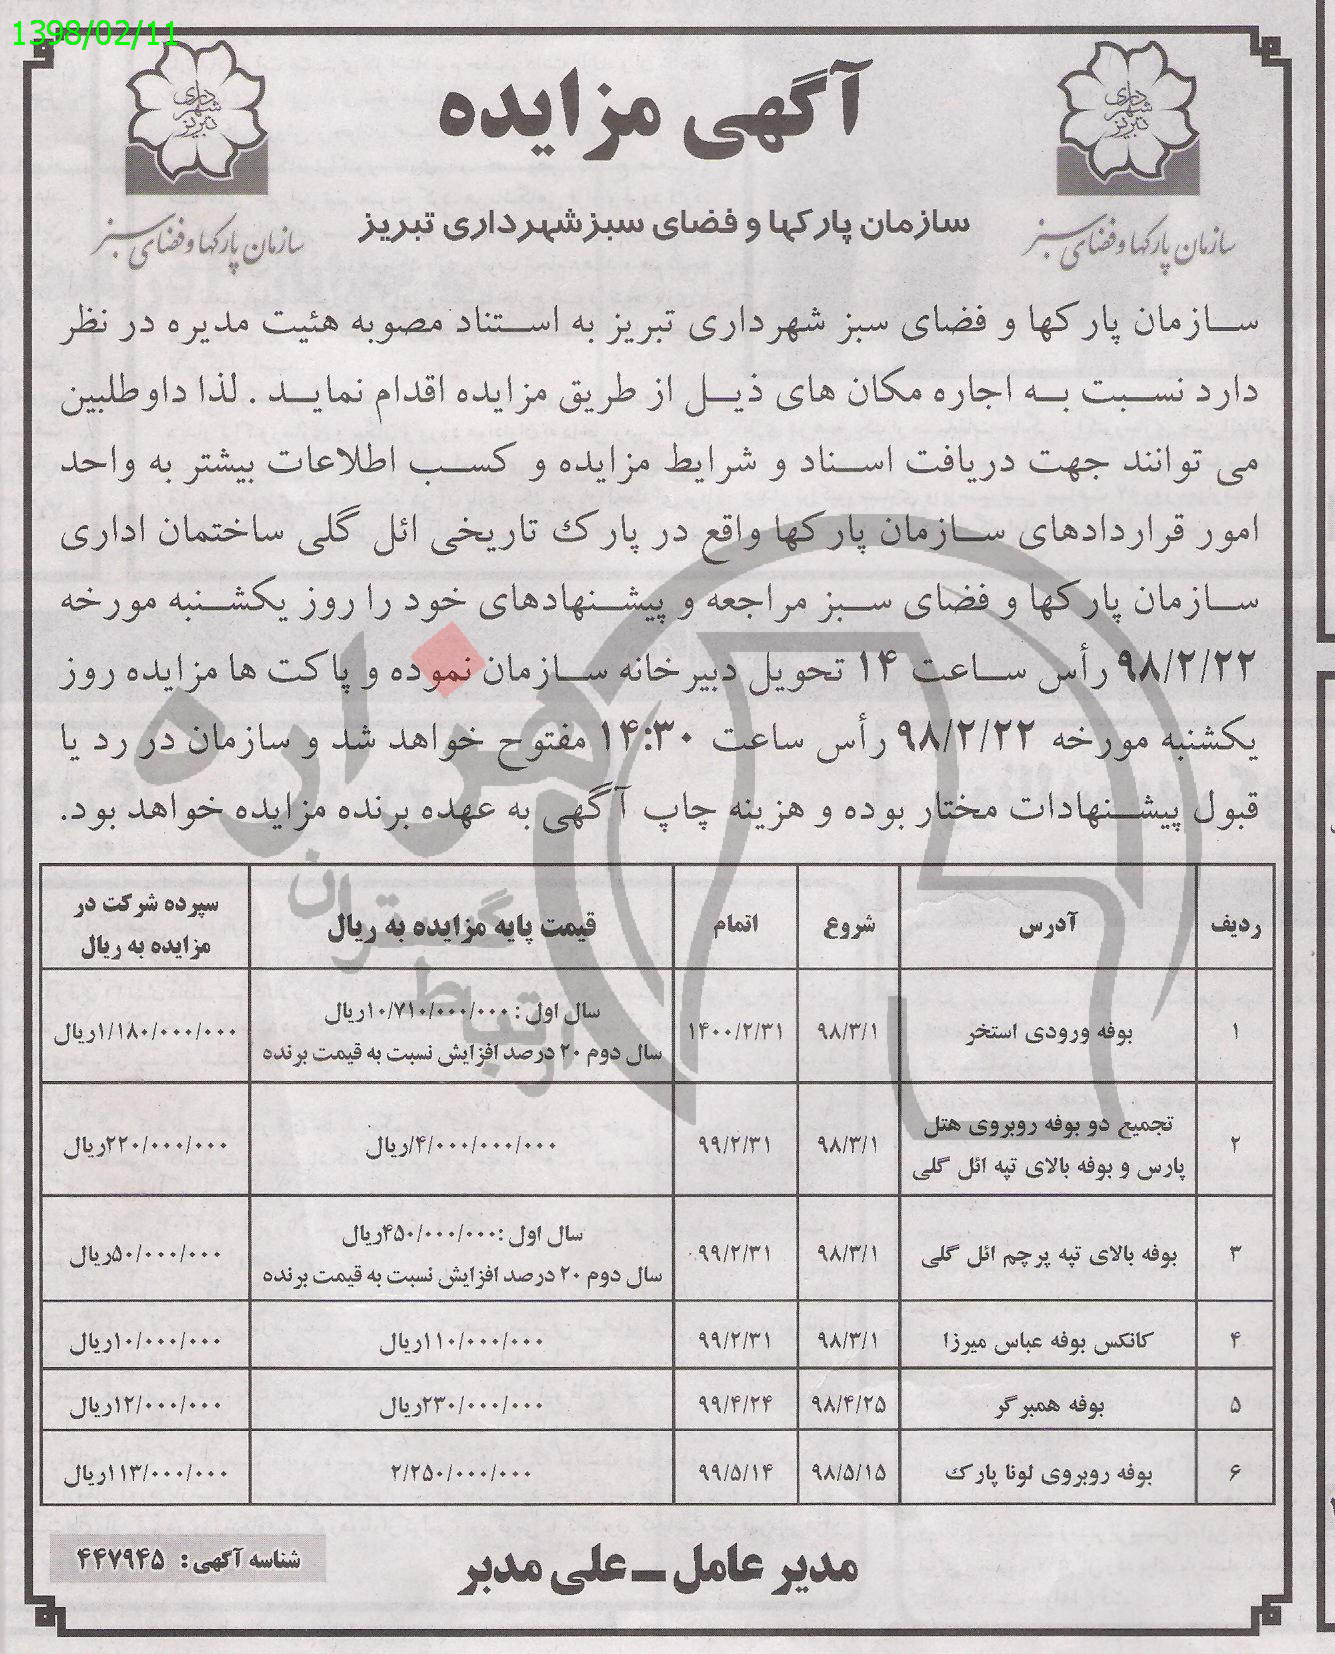 1398/02/11
آگهی مزایده
شهرداری تبریز
سازمان پارکها و فضای سبز
شهرداری تبریز
سازمان پارکها و فضای سبز
سازمان پارکها و فضای سبز شهرداری تبریز
سازمان پارکها و فضای سبز شهرداری تبریز به استناد مصوبه هئیت مدیره در نظر
دارد نسبت به اجاره مکان های ذیل از طریق مزایده اقدام نماید . لذا داوطلبین
می توانند جهت دریافت اسناد و شرایط مزایده و کسب اطلاعات بیشتر به واحد
امور قراردادهای سازمان پارکها واقع در پارک تاریخی ائل گلی ساختمان اداری
سازمان پارکها و فضای سبز مراجعه و پیشنهادهای خود را روز یکشنبه مورخه
۹۸/۲/۲۲ رأس ساعت ۱۴ تحویل دبیرخانه سازمان نموده و پاکت ها مزایده روز
یکشنبه مورخه ۹۸/۲/۲۲ رأس ساعت ۱۴:۳۰ مفتوح خواهد شد و سازمان در رد یا
قبول پیشنهادات مختار بوده و هزینه چاپ آگهی به عهده برنده مزایده خواهد بود.
هزاره
گستران
ارتباط
ردیف آدرس شروع اتمام قیمت پایه مزایده به ریال سپرده شرکت در مزایده به ریال
۱ بوفه ورودی استخر ۹۸/۳/۱ ۱۴۰۰/۲/۳۱ سال اول : ۱۰/۷۱۰/۰۰۰/۰۰۰ریال ۱/۱۸۰/۰۰۰/۰۰۰ریال
سال دوم ۲۰ درصد افزایش نسبت به قیمت برنده
۲ تجمیع دو بوفه روبروی هتل ۹۸/۳/۱ ۹۹/۲/۳۱ ۴/۰۰۰/۰۰۰/۰۰۰/ریال ۲۲۰/۰۰۰/۰۰۰ریال
پارس و بوفه بالای تپه ائل گلی
۳ بوفه بالای تپه پرچم ائل گلی ۹۸/۳/۱ ۹۹/۲/۳۱ سال اول :۴۵۰/۰۰۰/۰۰۰ریال ۵۰/۰۰۰/۰۰۰ریال
سال دوم ۲۰ درصد افزایش نسبت به قیمت برنده
۴ کانکس بوفه عباس میرزا ۹۸/۳/۱ ۹۹/۲/۳۱ ۱۱۰/۰۰۰/۰۰۰ریال ۱۰/۰۰۰/۰۰۰ریال
۵ بوفه همبرگر ۹۸/۴/۲۵ ۹۹/۴/۲۴ ۲۳۰/۰۰۰/۰۰۰ریال ۱۲/۰۰۰/۰۰۰ریال
۶ بوفه روبروی لونا پارک ۹۸/۵/۱۵ ۹۹/۵/۱۴ ۲/۲۵۰/۰۰۰/۰۰۰ ۱۱۳/۰۰۰/۰۰۰ریال
مدیر عامل ـ علی مدبر
شناسه آگهی: ۴۴۷۹۴۵